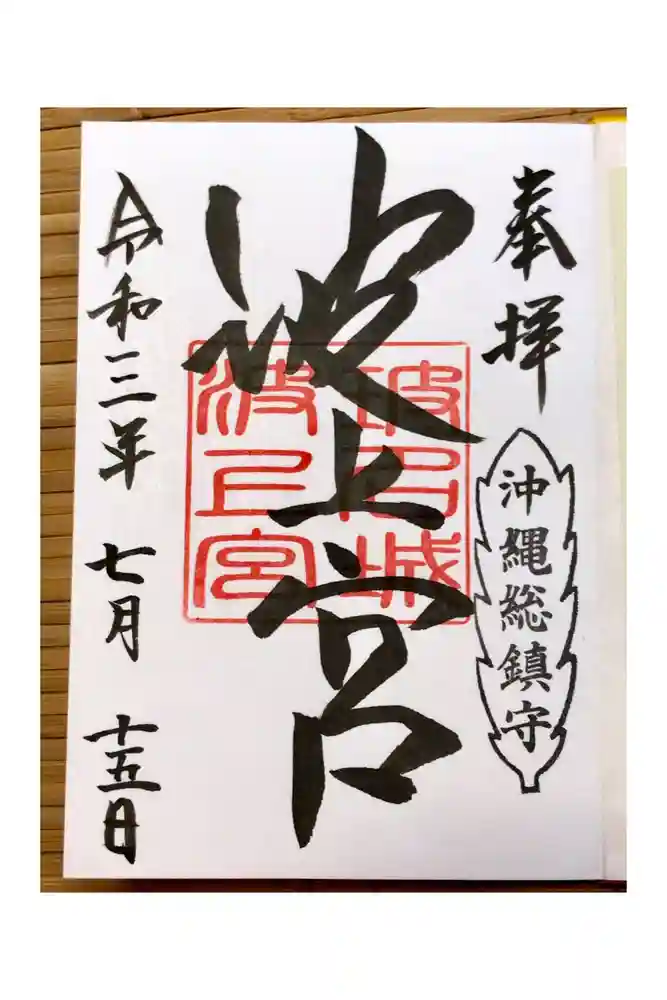 奉拝
沖縄総鎮守
波上宮
令和三年 七月 十五日